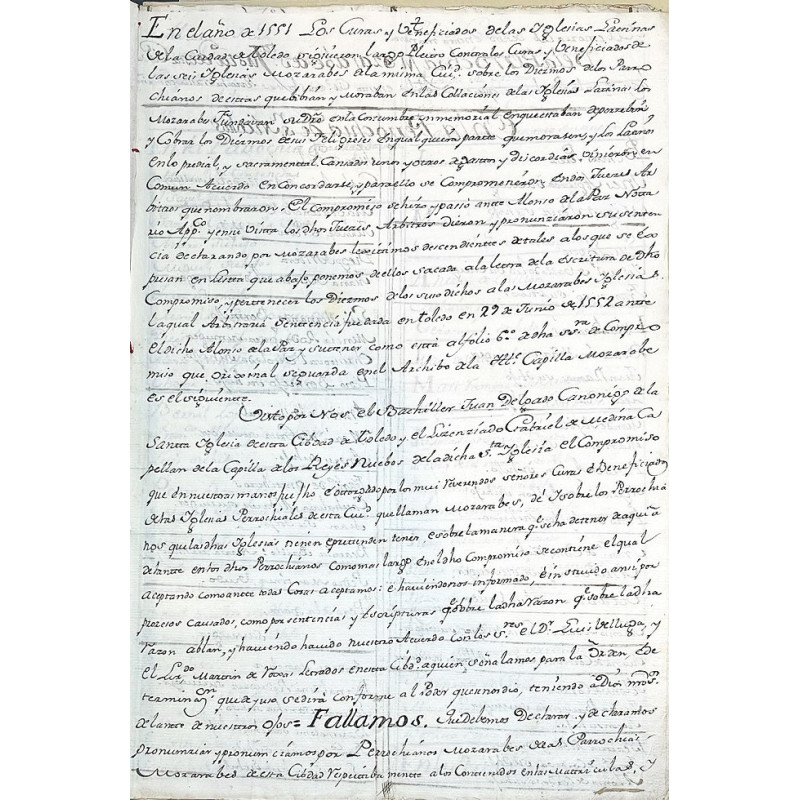 En el año de 1551 Los Curas, y Beneficiados de las Yglesias Latinas
de la Ciudad de Toledo siguieron largo Pleito Contra los Curas, y Beneficiados de
las seis Yglesias Mozarabes de la misma Ciud. sobre los Diezmos de los Parro
chianos de estas que bibian y Moraban en las Collaciones de las Yglesias Latinas los
Mozarabes fundavan su dro en la Costumbre inmemorial en que estaban de percebir
y Cobrar los Diezmos de sus feligreses en qual quiera parte que morasen, y los Latinos
en lo predial, y sacramental. Cansados unos y otros de gastos y discordias vinieron en
Comun Acuerdo en Concordarse, y para ello se Comprometieron en dos Jueces Ar
bitros que nombraron. El Compromiso se hizo y passó ante Alonso de la Paz Nota
rio Appco y en su vista los dhos Jueces Arbitros dieron y pronunziaron su senten
cia declarando por Mozarabes lexitimos descendientes de tales a los que se Ex
presan en Lista que abajo ponemos de ellos sacada a la letra de la Escritura de dho
Compromiso, y pertenecer los Diezmos de los susodichos a las Mozarabes Yglesias.
La qual Arbitraria sentencia fue dada en toledo en 29 de Junio de 1552 ante
el dicho Alonso de la Paz y su tenor como está al folio 6.º de dha ssra. de Compro
miso que original se guarda en el Archibo de la Ille. Capilla Mozarabe
es el siguiente.
Visto por Nos el Bachiller Juan Delgado Canonigo de la
Santta Yglesia de esta Cibdad de Toledo y el Lizenziado Grabiel de Medina Ca
pellan de la Capilla de los Reyes Nuebos de la dicha Sta Yglesia el Compromiso
que en nuestras manos fue fho e otorgado por los mui Reverendos señores Curas e Beneficiados
de las Yglesias Perrochiales de esta Ciud. que llaman Mozarabes, de sobre los Perrochia
nos que las dhas Yglesias tienen e pretenden tener, e sobre la manera q.e se ha de tener de aqui a
delante en los dhos Perrochianos como mas largo en el dho Compromiso se contiene el qual
aceptando como ante todas Cosas aceptamos: e haviendonos informado, e instruido ansi por
procesos causados, como por sentencias y Escripturas q.e sobre la dha Razon q.e sobre la dha
razon ablan, y haviendo havido nuestro Acuerdo con los Sres el Dr Luis Velluga, y
el Lizdo Martin de Letrados en esta Cibd. a quien señalamos para la Orden e De
terminaon que de yuso se dirá conforme al Poder que nos dio, teniendo a Dios nro Sr.
delante de nuestros Ojos = Fallamos. Que Debemos Declarar, y declaramos
pronunziar y pronunciamos por Perrochianos Mozarabes de las Parrochias
Mozarabes de esta Cibdad Respectiba mente a los Contenidos en las Matriculas, y